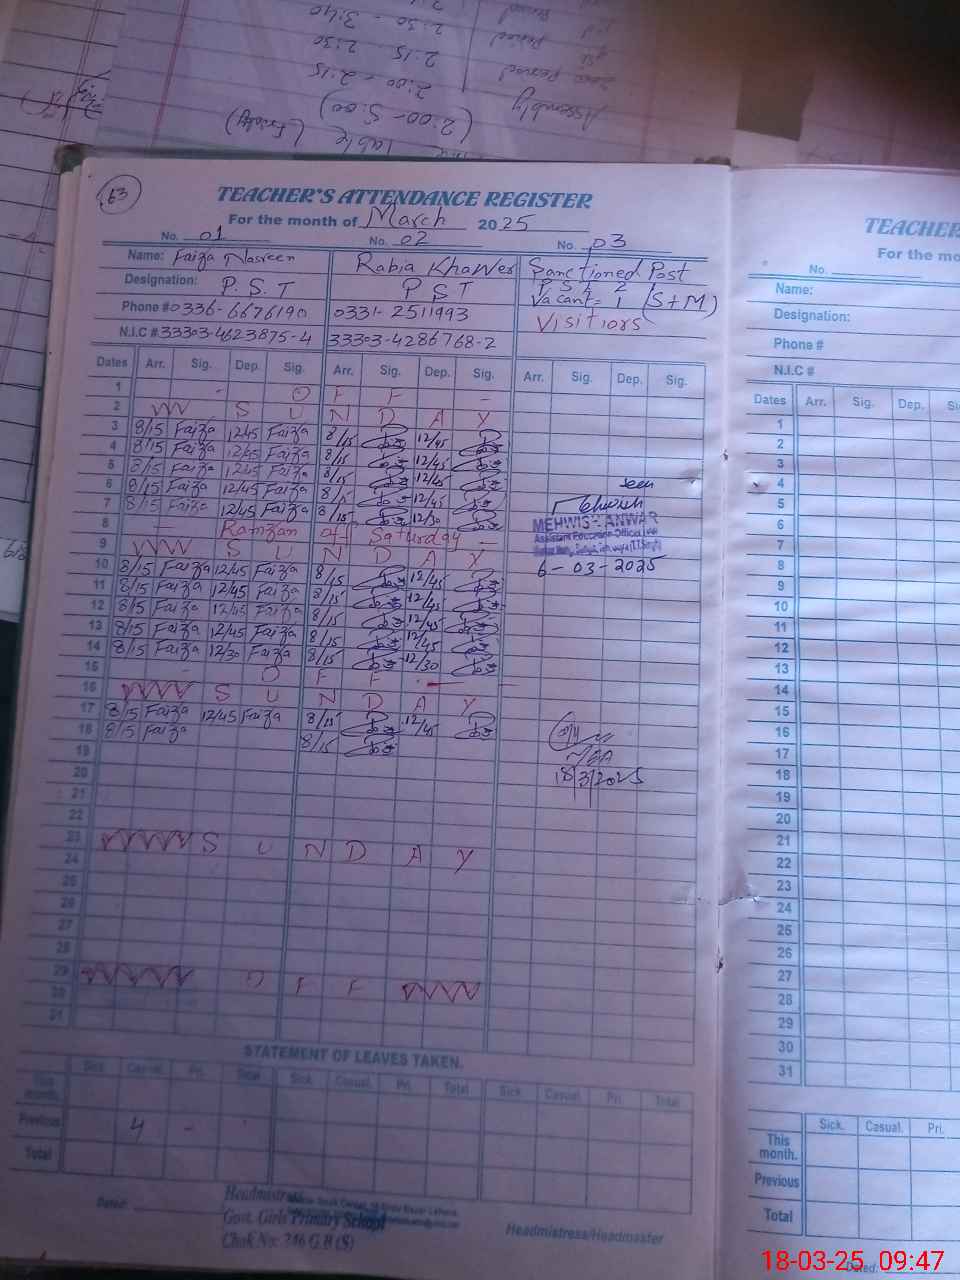 Assembly 2:00 - 2:15
2:15 - 2:30
2:30 - 3:40
(2:00 - 5:00)
Table (Friday)
63
TEACHER'S ATTENDANCE REGISTER
For the month of March 2025
No. 01 No. 02 No. 03
Name: Faiza Nasreen Rabia Khawer Sanctioned Post
Designation: P.S.T P S T Vacant = 1 (S+M)
Phone # 0336-6676190 0331-2511993 Visitiors
N.I.C # 33303-4623875-4 33303-4286768-2
Dates Arr. Sig. Dep. Sig. Arr. Sig. Dep. Sig. Arr. Sig. Dep. Sig.
1 - O F F -
2 S U N D A Y
3 8/15 Faiza 12/45 Faiza 8/15 12/45
4 8/15 Faiza 12/45 Faiza 8/15 12/45
5 8/15 Faiza 12/45 Faiza 8/15 12/45
6 8/15 Faiza 12/45 Faiza 8/15 12/45
7 8/15 Faiza 12/45 Faiza 8/15 12/30
8 - Ramzan off Saturday -
9 S U N D A Y
10 8/15 Faiza 12/45 Faiza 8/15 12/45
11 8/15 Faiza 12/45 Faiza 8/15 12/45
12 8/15 Faiza 12/45 Faiza 8/15 12/45
13 8/15 Faiza 12/45 Faiza 8/15 12/45
14 8/15 Faiza 12/30 Faiza 8/15 12/30
15 - O F F - -
16 S U N D A Y
17 8/15 Faiza 12/45 Faiza 8/15 12/45
18 8/15 Faiza 8/15
19
20
21
22
23 S U N D A Y
24
25
26
27
28
29 O F F
30
31
seen
MEHWISH ANWAR
6-03-2025
18/3/2025
STATEMENT OF LEAVES TAKEN.
Sick Casual. Pri. Total Sick. Casual. Pri. Total Sick. Casual Pri. Total
This month.
Previous 4 -
Total
Dated:
Headmistress
Govt. Girls Primary School
Chak No: 246 G B (S)
Headmistress/Headmaster
TEACHER
For the mo
No.
Name:
Designation:
Phone #
N.I.C #
Dates Arr. Sig. Dep.
1
2
3
4
5
6
7
8
9
10
11
12
13
14
15
16
17
18
19
20
21
22
23
24
25
26
27
28
29
30
31
Sick. Casual. Pri.
This month.
Previous
Total
Dated:
18-03-25 09:47